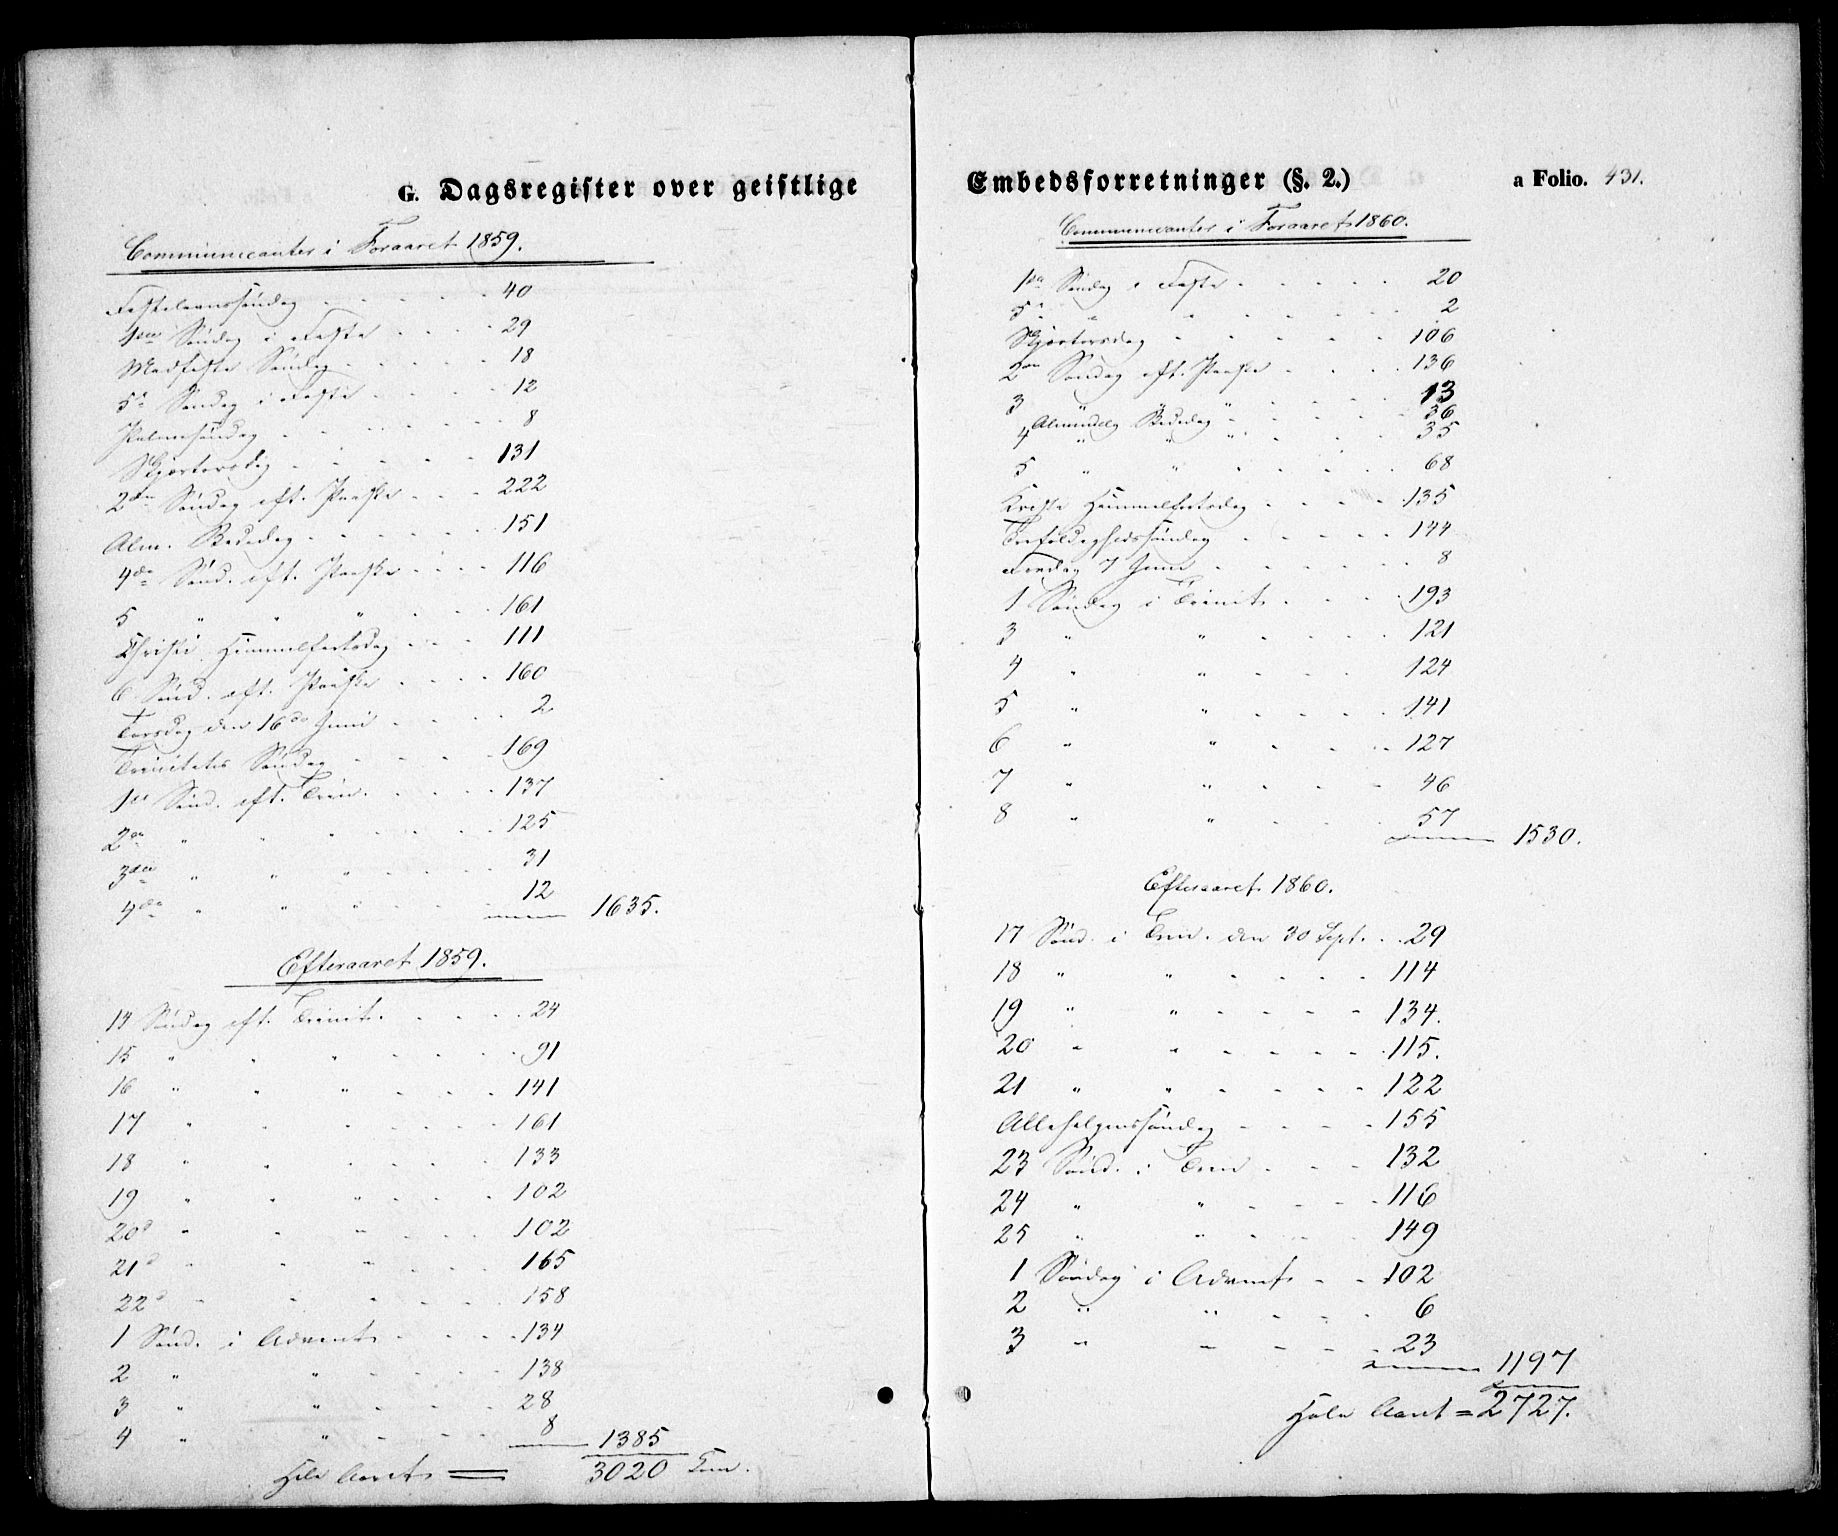 G. Dagsregister over geistlige
Communicanter i Foraaret 1859.
Fastelavnssöndag 40
1ste Söndag i Faste 29
Midfaste Söndag 18
5te Söndag i Faste 12
Palmesöndag 8
Skjærtorsdag 131
2den Söndag eft. Paaske 222
Alm. Bededag 151
4de Sönd. eft. Paaske 116
5 " " 161
Christi Himmelfartsdag 111
6 Sönd. eft. Paaske 160
Torsdag den 16de Juni 2
Trinitatis Söndag 169
1ste Sönd. eft. Trin. 137
2den " " " 125
3die " " " 31
4de " " " 12
1635.
Efteraaret 1859.
14 Söndag eft. Trinit. 24
15 " " " 91
16 " " " 141
17 " " " 161
18 " " " 133
19 " " " 102
20d " " " 102
21d " " " 165
22d " " " 158
1 Sönd. i Advent 134
2 " " 138
3 " " 28
4 " " 8
1385
Hele Aaret = 3020
Embedsforretninger (§. 2.)
a Folio. 431.
Communicanter i Foraaret 1860.
1ste Söndag i Faste 20
5te " " 2
Skjærtorsdag 106
2den Söndag eft. Paaske 136
3 " " " 13
Almindelig Bededag 36
4 " " " 35
5 " " 68
Kristi Himmelfartsdag 135
Trefoldighedssöndag 144
Torsdag 7 Juni 8
1 Söndag i Trinit. 193
3 " " 121
4 " " 124
5 " " 141
6 " " 127
7 " " 46
8 " " 57
1530.
Efteraaret 1860.
17 Sönd. i Trin. den 30 Sept. 29
18 " " 114
19 " " 134.
20 " " 115.
21 " " 122
Allehelgenssöndag 155
23 Sönd. i Trin 132
24 " " 116
25 " " 149
1 Söndag i Advent 102
2 " " 6
3 " " 23
1197
Hele Aaret = 2727.